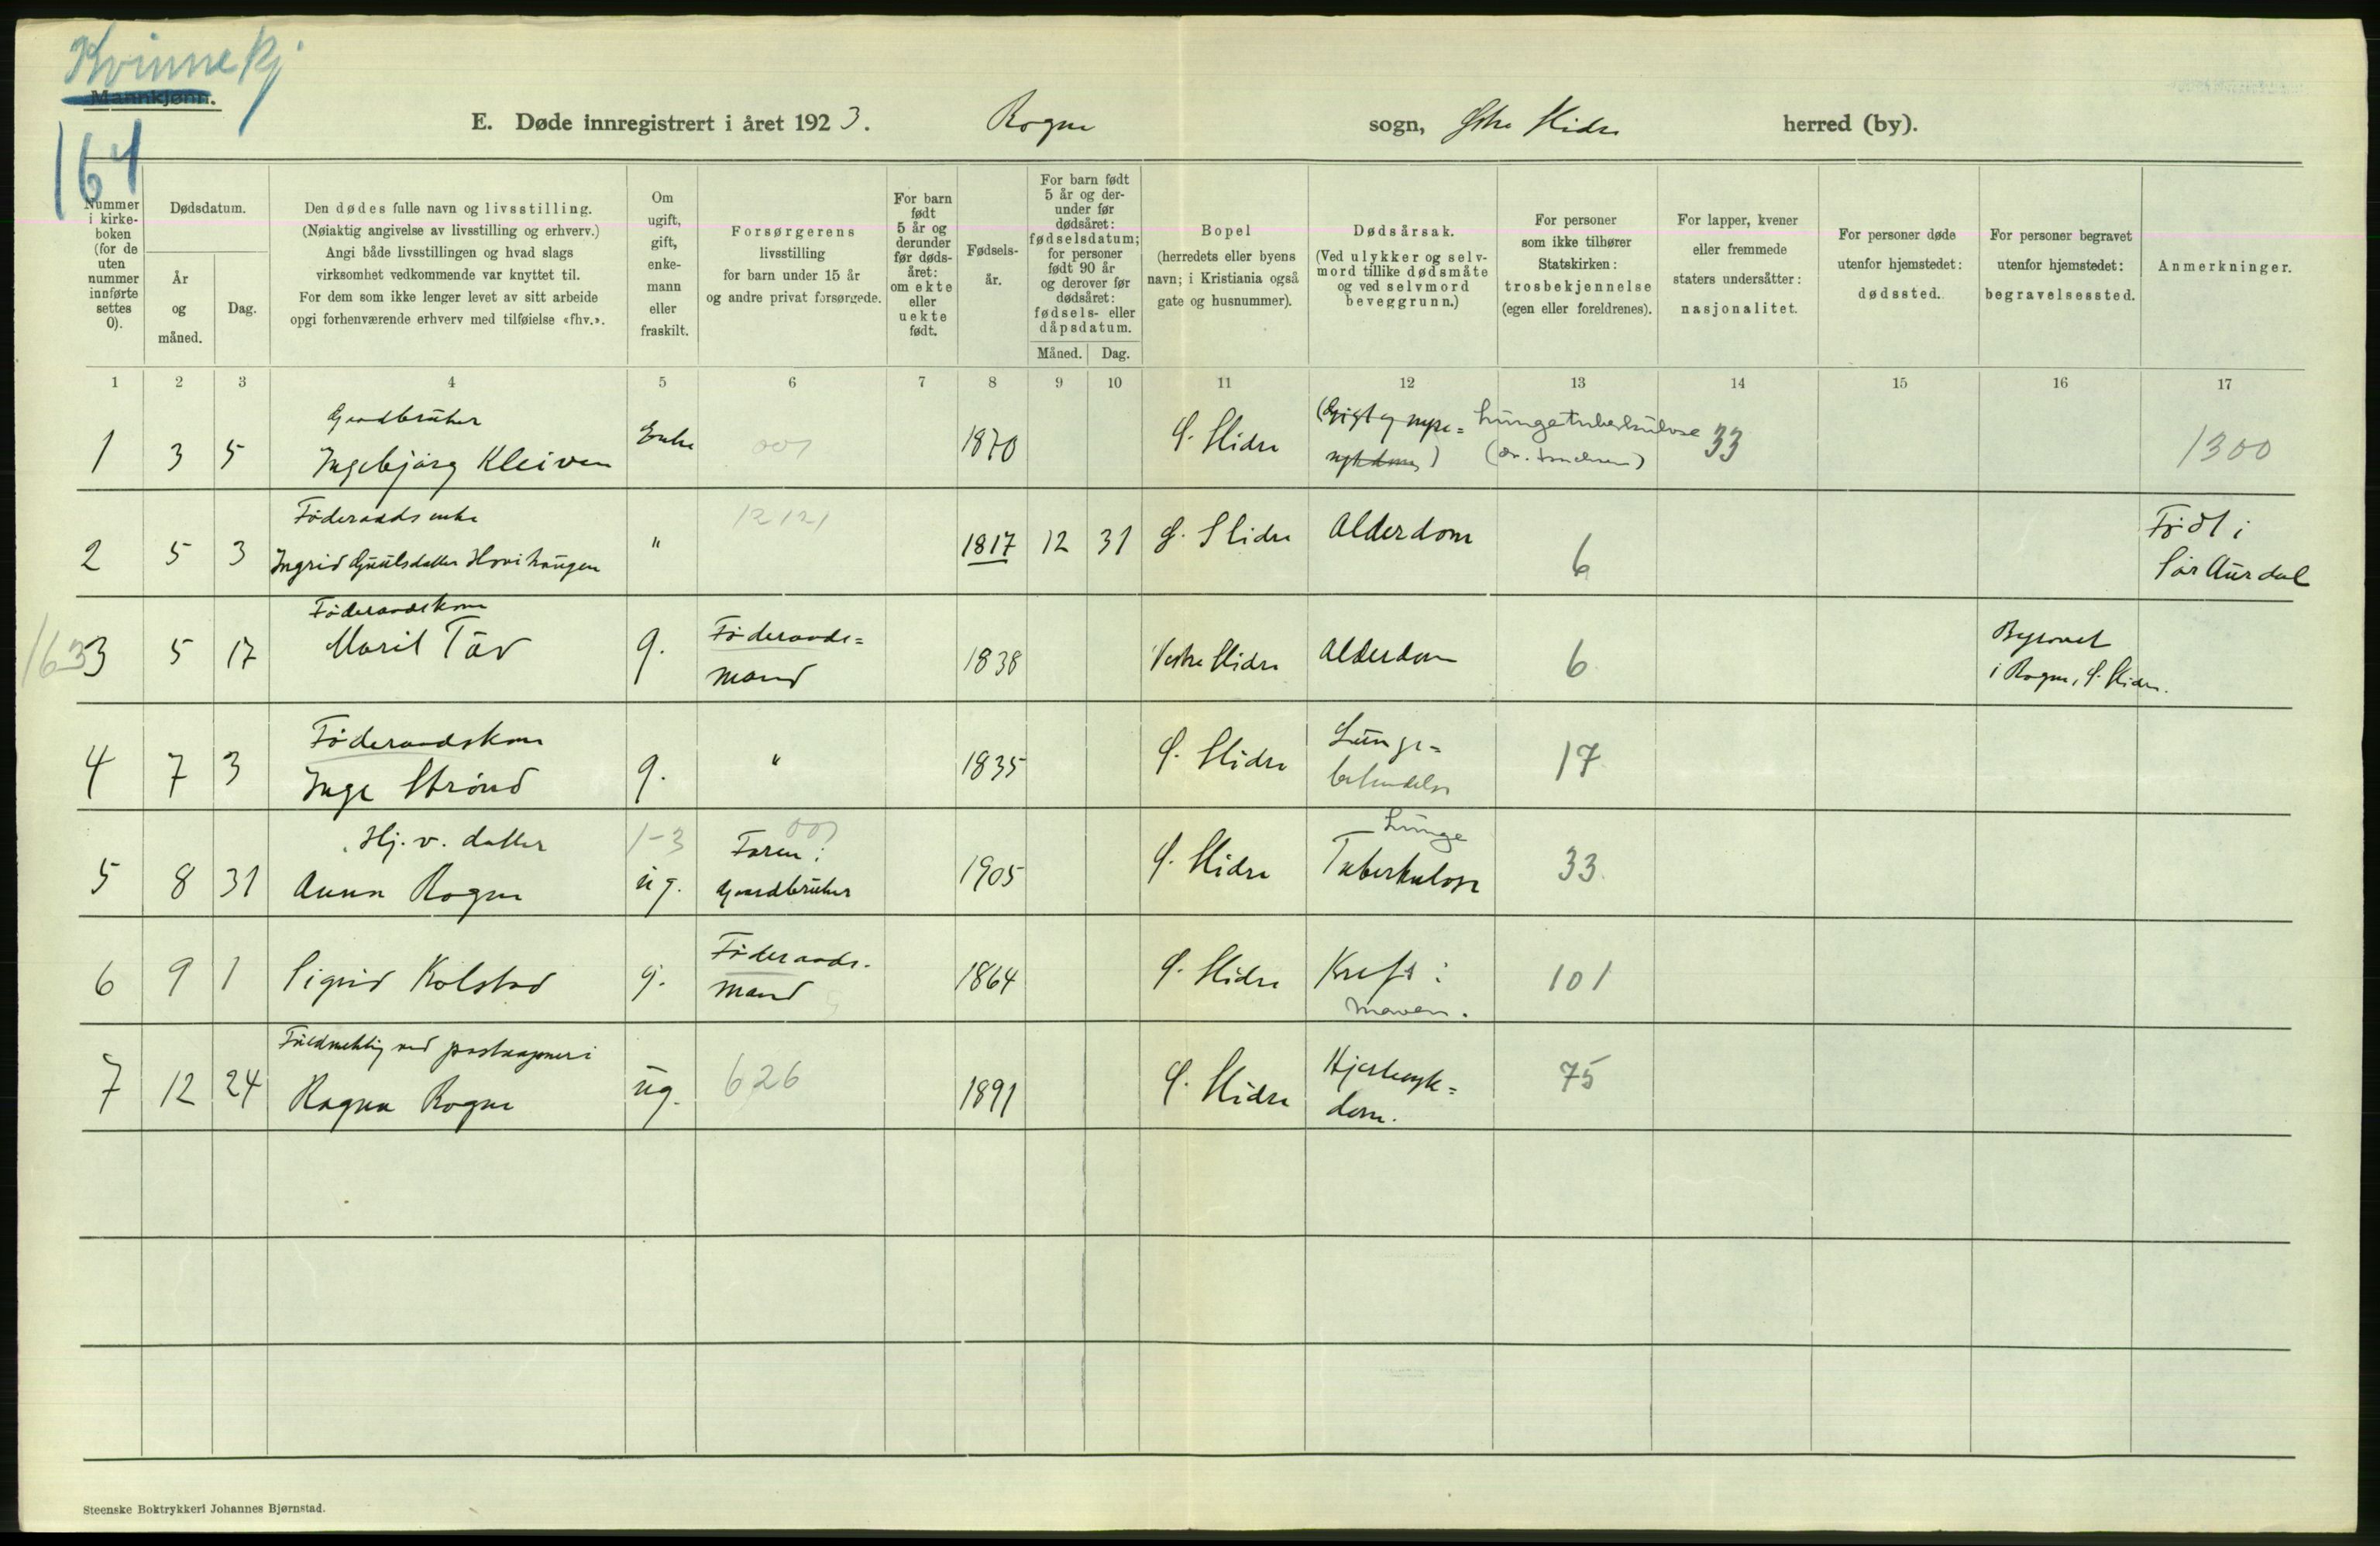 Kvinnekj
Mannkjønn.
164
E. Døde innregistrert i året 1923. Rogne sogn, Østre Slidre herred (by).
Nummer i kirke-boken (for de uten nummer innførte settes 0).
Dødsdatum.
År og måned.
Dag.
Den dødes fulle navn og livsstilling.
(Nøiaktig angivelse av livsstilling og erhverv.)
Angi både livsstillingen og hvad slags
virksomhet vedkommende var knyttet til.
For dem som ikke lenger levet av sitt arbeide
opgi forhenværende erhverv med tilføielse «fhv.».
Om ugift, gift, enke-mann eller fraskilt.
Forsørgerens
livsstilling
for barn under 15 år
og andre privat forsørgede.
For barn født 5 år og derunder før døds-året: om ekte eller uekte født.
Fødsels-år.
For barn født 5 år og der-under før dødsåret: fødselsdatum; for personer født 90 år og derover før dødsåret: fødsels- eller dåpsdatum.
Måned. Dag.
Bopel
(herredets eller byens
navn; i Kristiania også
gate og husnummer).
Dødsårsak.
(Ved ulykker og selv-
mord tillike dødsmåte
og ved selvmord
beveggrunn.)
For personer
som ikke tilhører
Statskirken:
trosbekjennelse
(egen eller foreldrenes).
For lapper, kvener
eller fremmede
staters undersåtter:
nasjonalitet.
For personer døde
utenfor hjemstedet:
dødssted.
For personer begravet
utenfor hjemstedet:
begravelsessted.
Anmerkninger.
1 2 3 4 5 6 7 8 9 10 11 12 13 14 15 16 17
Gaardbruker
1 3 5 Ingebjørg Kleiven Enke 001 1870 Ø. Slidre (Gigt og nyre= sykdom) Lungetuberkulose 33 1300
Föderaads enke
2 5 3 Ingrid Gjulsdatter Hovihaugen " 12121 1817 12 31 Ø. Slidre Alderdom 6 Född i
Sør Aurdal
Föderaadskone
163 3 5 17 Marit Tåv g. Föderaads=
mand 1838 Vestre Slidre Alderdom 6 Begravet
i Rogne, Ø. Slidre.
Föderaadskone
4 7 3 Inge Strönd g. " 1835 Ø. Slidre Lunge=
betendelse 17
Hj. v. datter 1-3 001
5 8 31 Anna Rogne ug. Faren:
Gaardbruker 1905 Ø. Slidre Lunge
Tuberkulose 33
6 9 1 Sigrid Kolstad g. Föderaads-
mand 1864 Ø. Slidre Kreft i
maven. 101
Fuldmektig ved postaapneri
7 12 24 Ragna Rogne ug. 626 1891 Ø. Slidre Hjertesyk=
dom. 75
Steenske Boktrykkeri Johannes Bjørnstad.